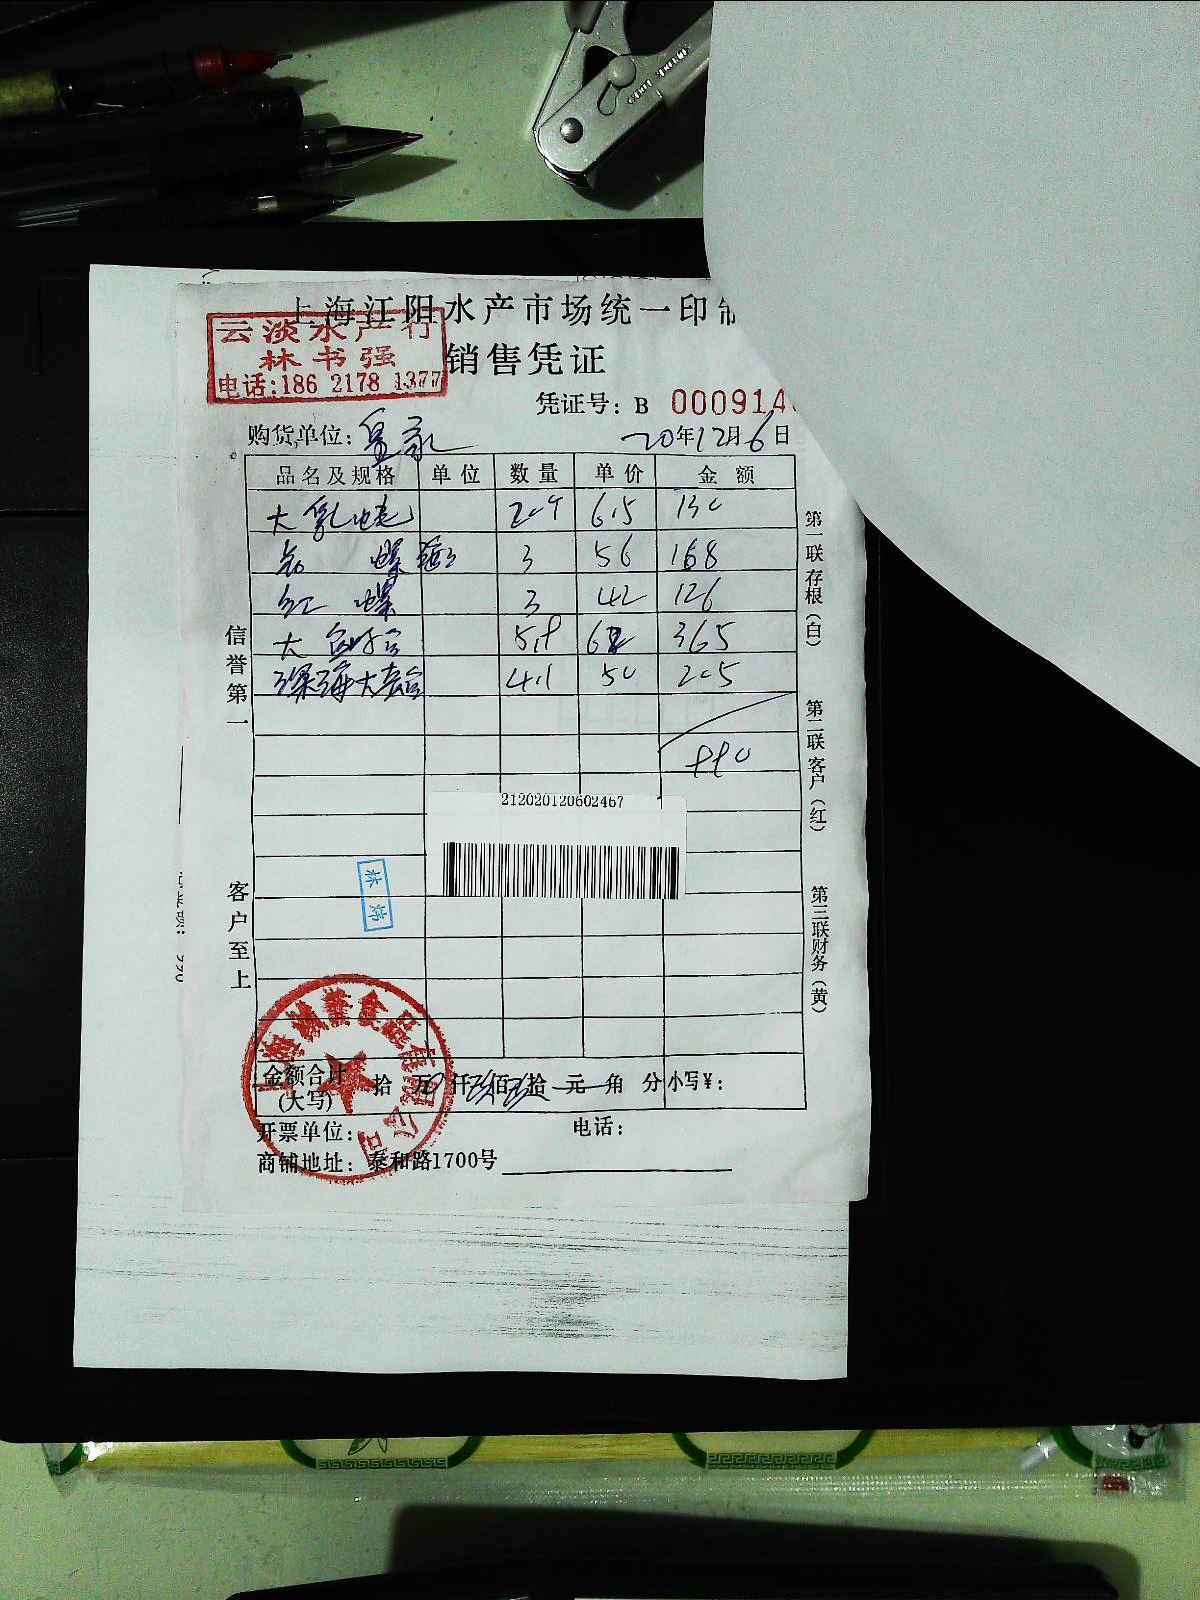 上海江阳水产市场统一印制
云淡水产行
林书强
电话:186 2178 1377
销售凭证
凭证号: B 000914
购货单位: 皇家
20年12月6日
品名及规格 单位 数量 单价 金额
大 6.5 130
螺 3 56 168
红 螺 3 42 126
大 5.8 365
深海大 4.1 50 205
第一联存根(白)
第二联客户(红)
第三联财务(黄)
信誉第一
客户至上
212020120602467
林
食品有限公司
金额合计 拾 万 仟玖佰玖拾 元 角 分 小写¥:
(大写)
开票单位: 电话:
商铺地址: 泰和路1700号